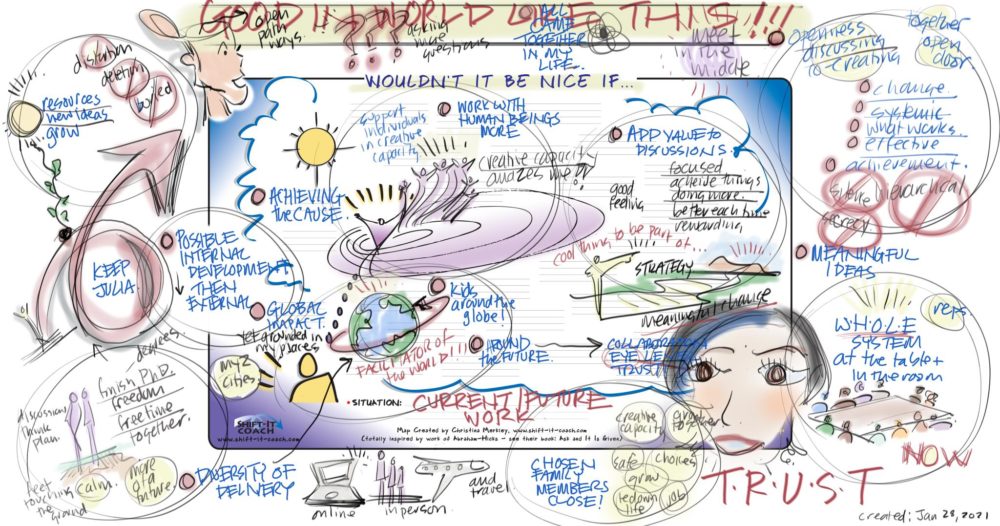 GOOD IN WORLD LIKE THIS!!!
open
path
ways.
???
asking
more
questions
ALL
CAME
TOGETHER
IN MY
LIFE.
meet
in the
middle
openness
discussing
co-creating
together
open
door.
distortion
deletion
buried
resources
new ideas
grow
WOULDN'T IT BE NICE IF...
support
individuals
in creative
capacity
WORK WITH
HUMAN BEINGS
MORE
creative capacity
ADD VALUE TO
DISCUSSIONS
good
feeling
focused
achieve things
doing more.
better each time
rewarding
change.
systemic
what works.
effective
achievement.
hierarchical
secrecy
ACHIEVING
the CAUSE.
KEEP
JULIA
POSSIBLE
INTERNAL
DEVELOPMENT
THEN
EXTERNAL
cool thing to be part of...
STRATEGY
meaningful change
MEANINGFUL
IDEAS
GLOBAL
IMPACT.
yet grounded in
my places
Kids
around the
globe!
FACILITATOR of
the WORLD!!!
AROUND
the FUTURE.
COLLABORATION
EYE LEVEL
TRUST
WHOLE
SYSTEM
at the table +
in the room
reps
NOW
degrees.
finish PhD.
freedom
free time
together.
discussion
think
plan.
feet
touching
the
ground
calm.
more
of a
future.
my 2
cities
• SITUATION:
CURRENT/FUTURE
WORK
SHIFT-IT
COACH
www.shift-it-coach.com
Map Created by Christina Merkley, www.shift-it-coach.com
(totally inspired by work of Abraham-Hicks - see their book: Ask and It Is Given)
DIVERSITY OF
DELIVERY
online
in person
and
travel
CHOSEN
FAMILY
MEMBERS
CLOSE!
creative
capacity
grow
together
safe
choices
grow
life
job
T.R.U.S.T
created: Jan 28, 2021